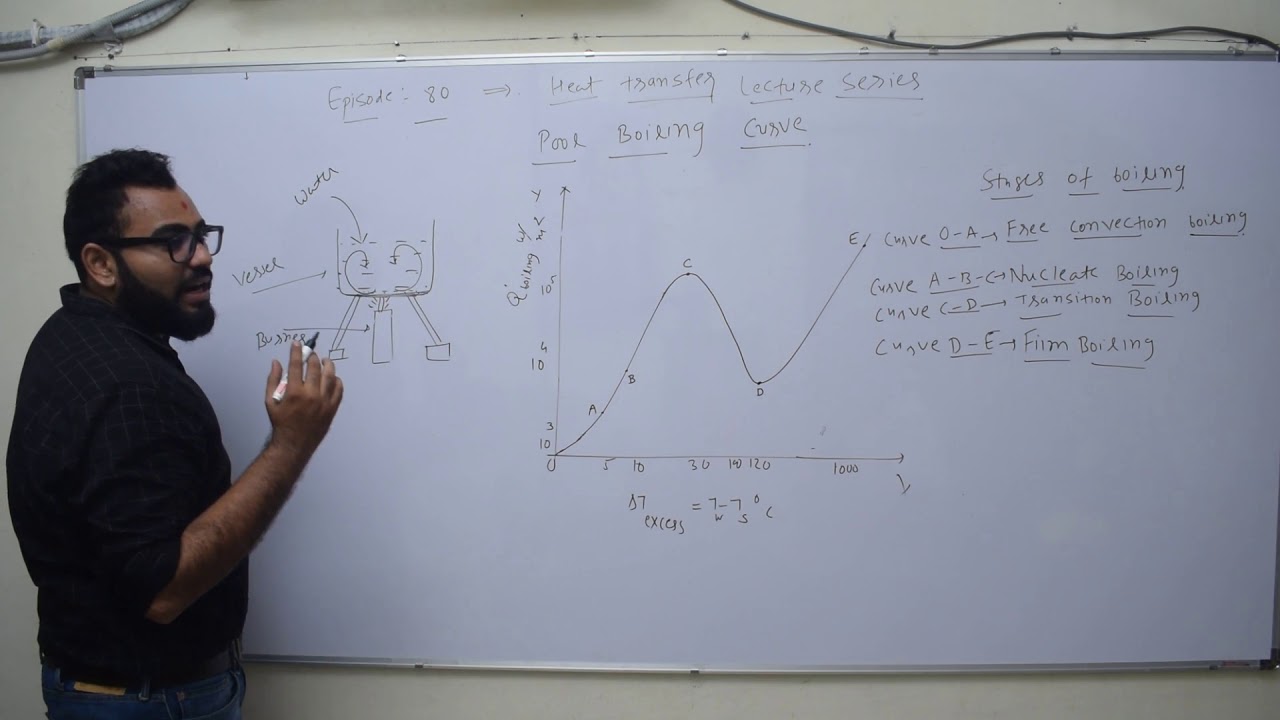 Episode: 80 ⇒ Heat transfer Lecture series
Pool Boiling Curve
Water
Vessel
Burner
Y
Q̇ boiling w/m²
10⁴
10³
0 5 10 30 120 1000
A
B
C
D
E
ΔT excess = Tw - Ts °C
Stages of boiling
Curve O-A → Free convection boiling
Curve A-B-C → Nucleate Boiling
Curve C-D → Transition Boiling
Curve D-E → Film Boiling